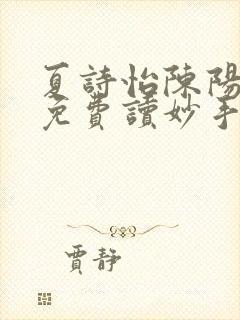 夏詩怡陳陽
免費讀妙手
賈靜